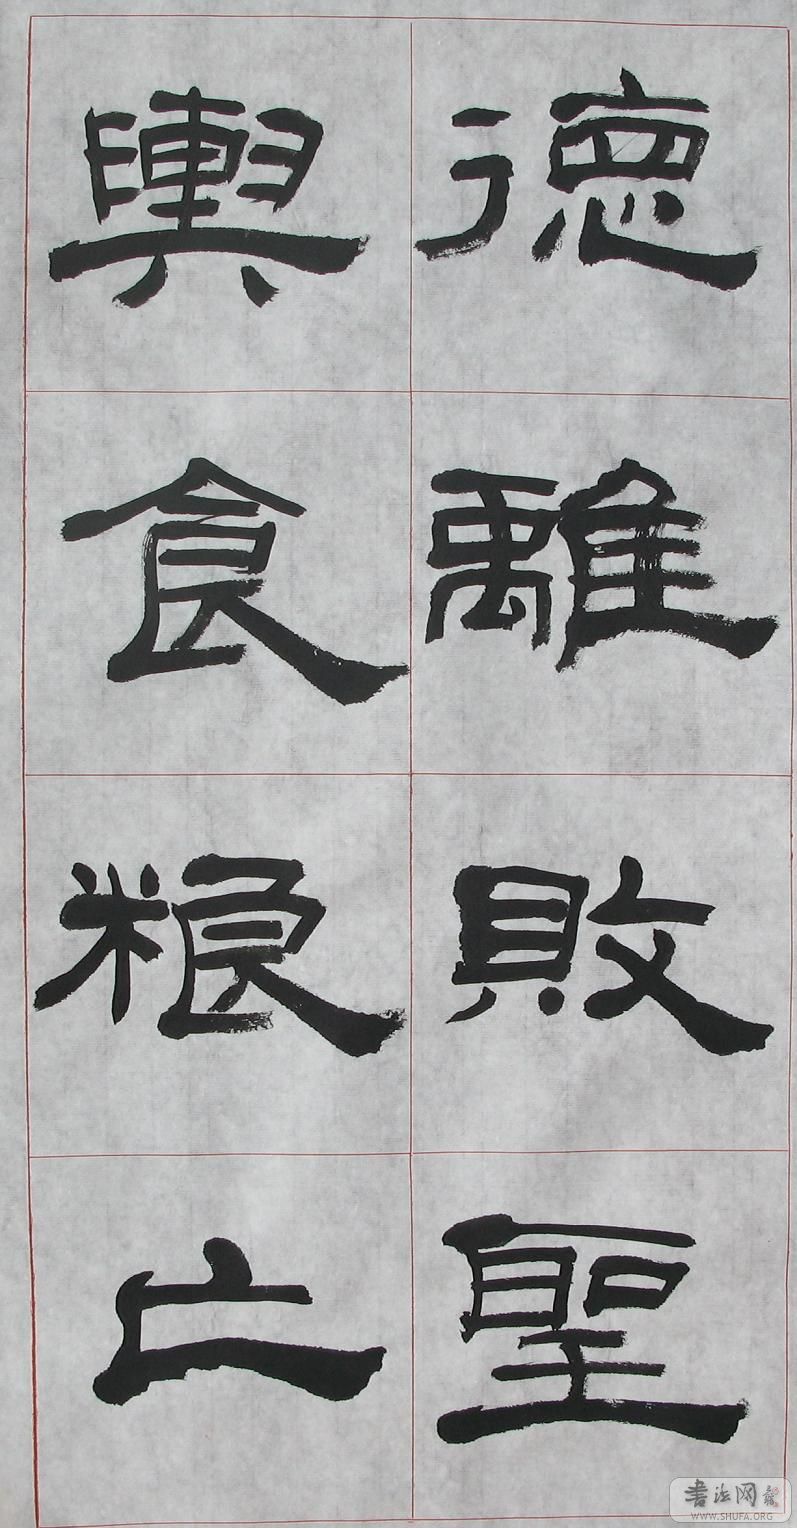 德離敗聖
輿食粮亡
書法网
WWW.SHUFA.ORG